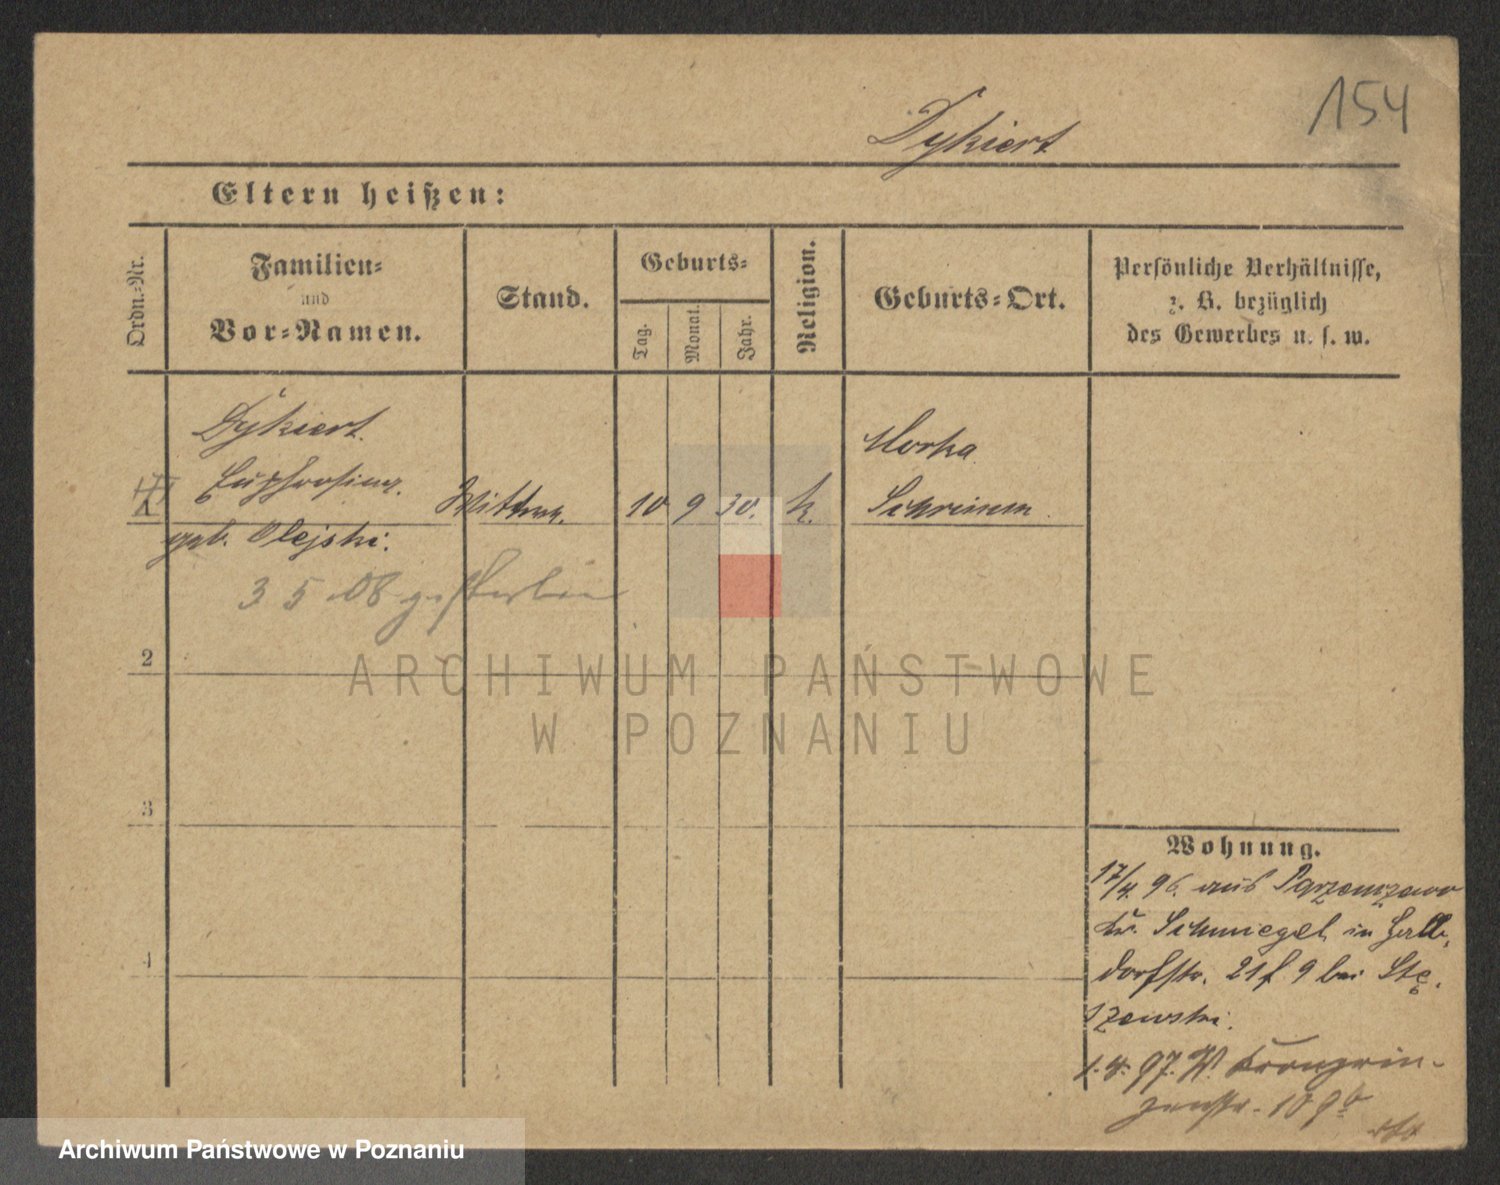 154
Dykiert
Eltern heißen:
Ordn.-Nr.
Familien-
und
Vor-Namen.
Stand.
Geburts-
Tag.
Monat.
Jahr.
Religion.
Geburts-Ort.
Persönliche Verhältnisse,
z. B. bezüglich
des Gewerbes u. s. w.
Dykiert
Euphrosina,
geb. Olejski.
Wittwe.
10
9
30.
k.
Morka
Schrimm
3 5 08 gestorben
2
3
4
Wohnung.
17/4. 96. aus
Kr. Schmiegel in Halle
dorfstr. 21 f 9 bei Stę
szewski.
1. 4. 97. W. Kronprin-
zenstr.
ARCHIWUM PAŃSTWOWE
W POZNANIU
Archiwum Państwowe w Poznaniu